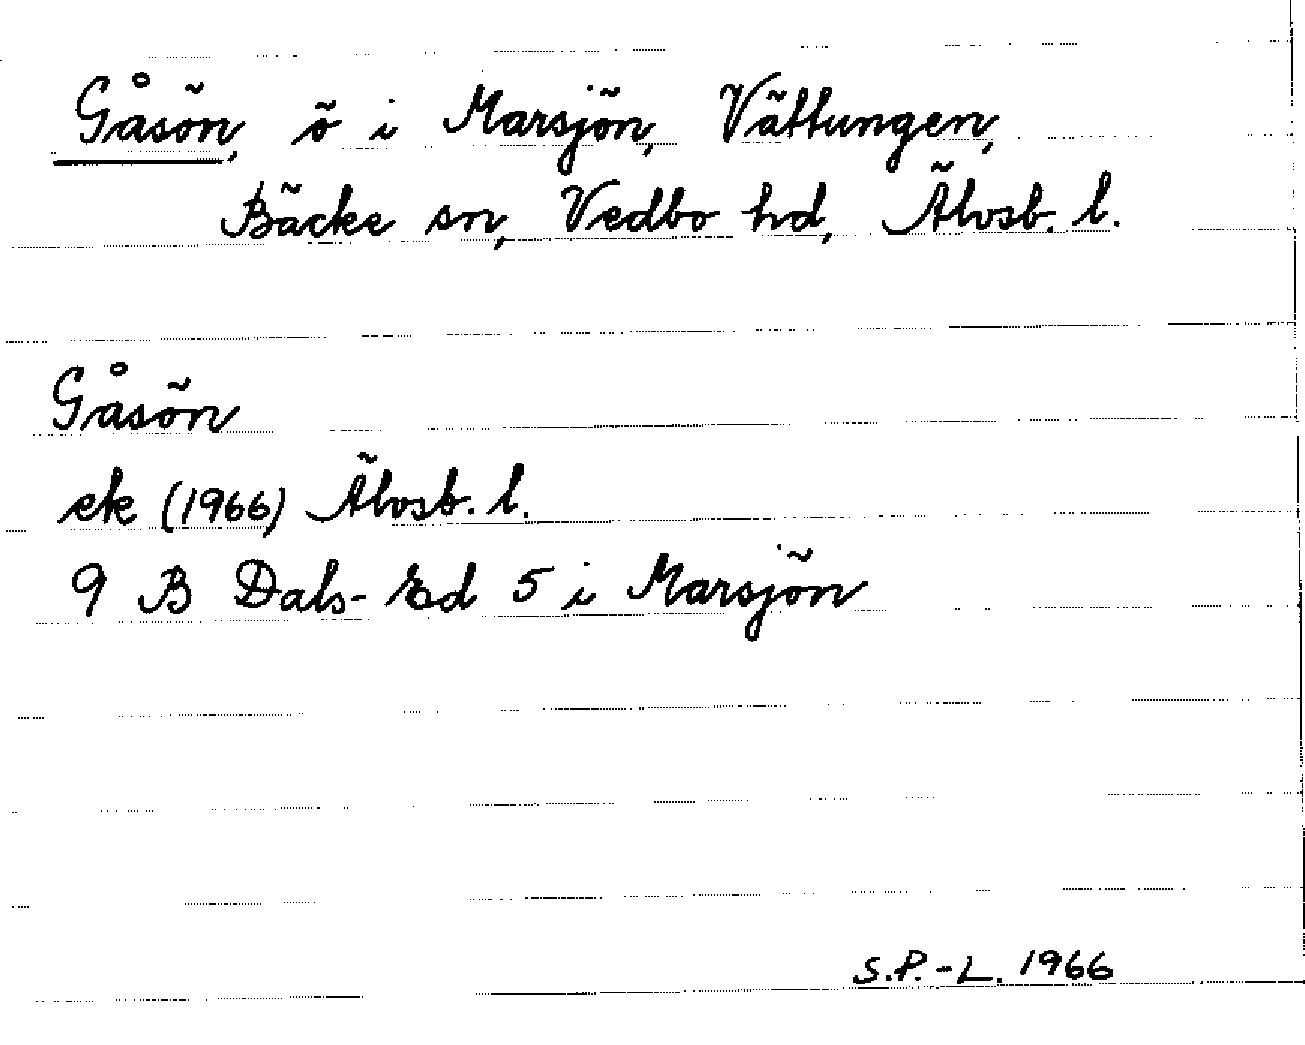 Gåsön, ö i Marsjön, Vättungen,
Bäcke sn, Vedbo hd, Älvsb. l.
Gåsön
ek (1966) Älvsb. l.
9 B Dals-Ed 5 i Marsjön
S.P.-L. 1966